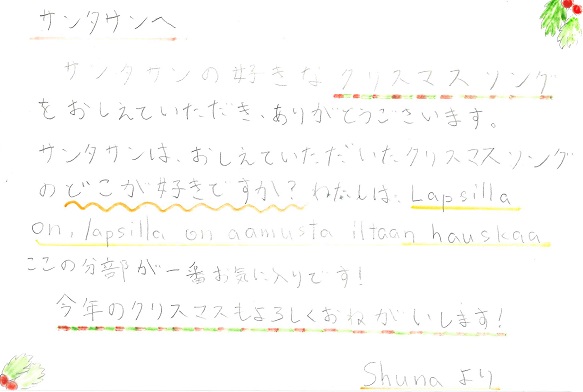 サンタサンへ
サンタサンの好きなクリスマスソング
をおしえていただき、ありがとうございます。
サンタサンは、おしえていただいたクリスマスソング
のどこが好きですか? わたしは、Lapsilla
on, lapsilla on aamusta iltaan hauskaa
ここの分部が一番お気に入りです!
今年のクリスマスもよろしくおねがいします!
Shunaより